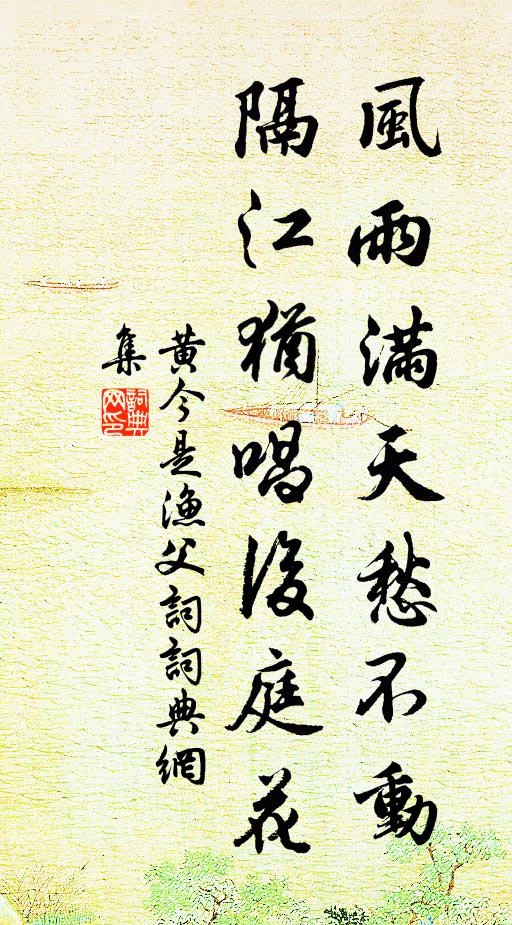 風雨滿天愁不動
隔江猶唱後庭花
黃今是漁父詞詞典網
集
詞典
网印